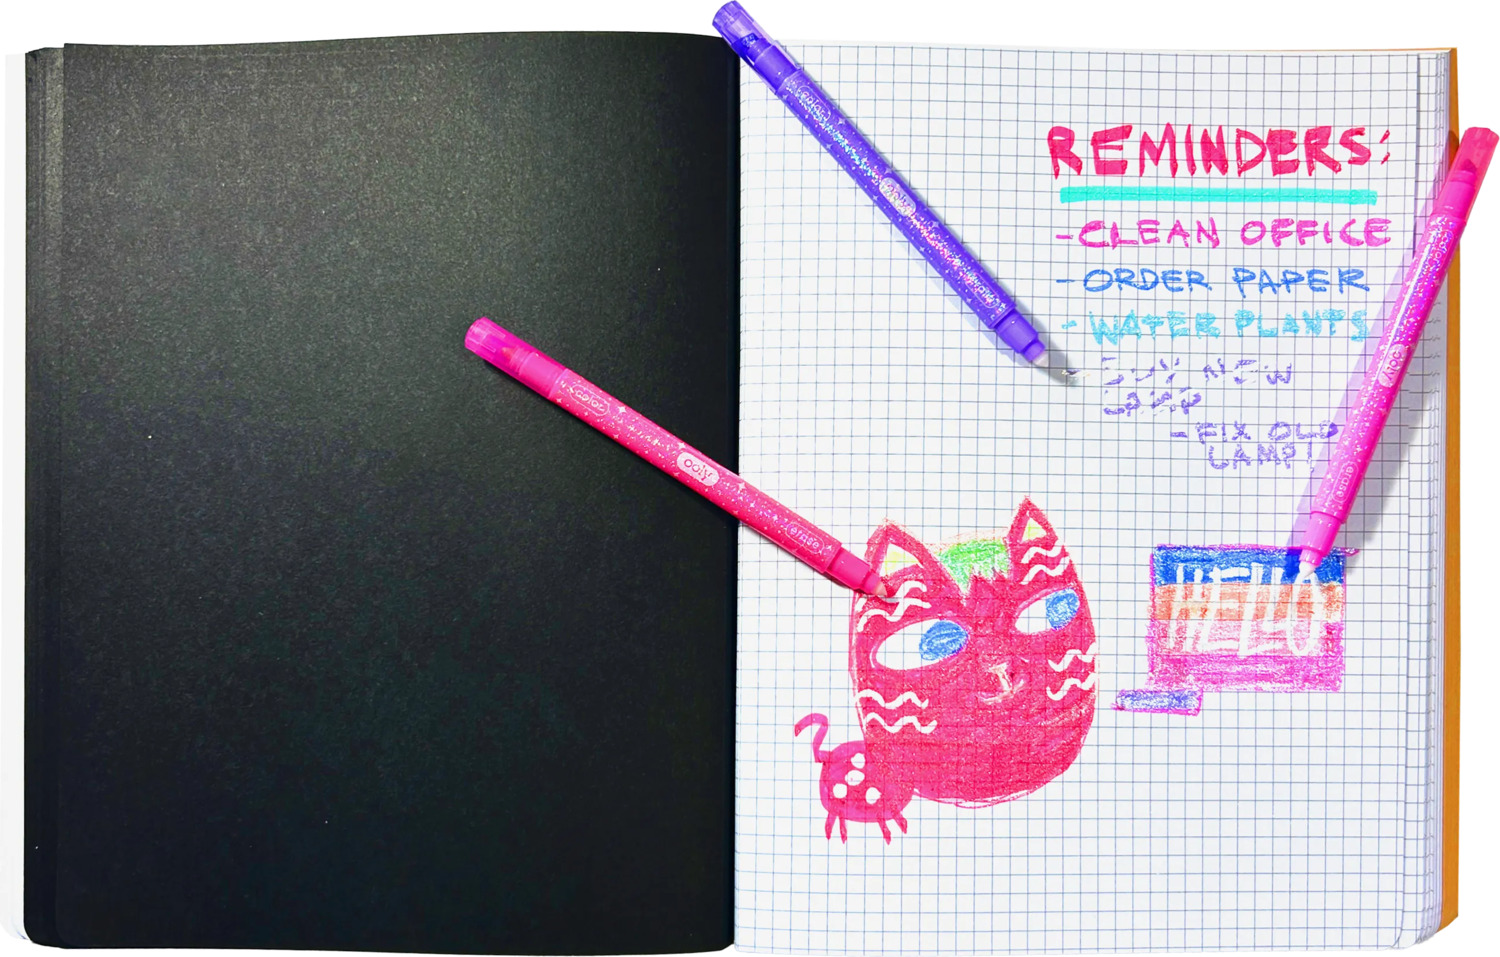 REMINDERS:
- CLEAN OFFICE
- ORDER PAPER
- WATER PLANTS
- BUY NEW
LAMP
- FIX OLD
LAMP!
HELLO
color
ooly
erase
color
ooly
erase